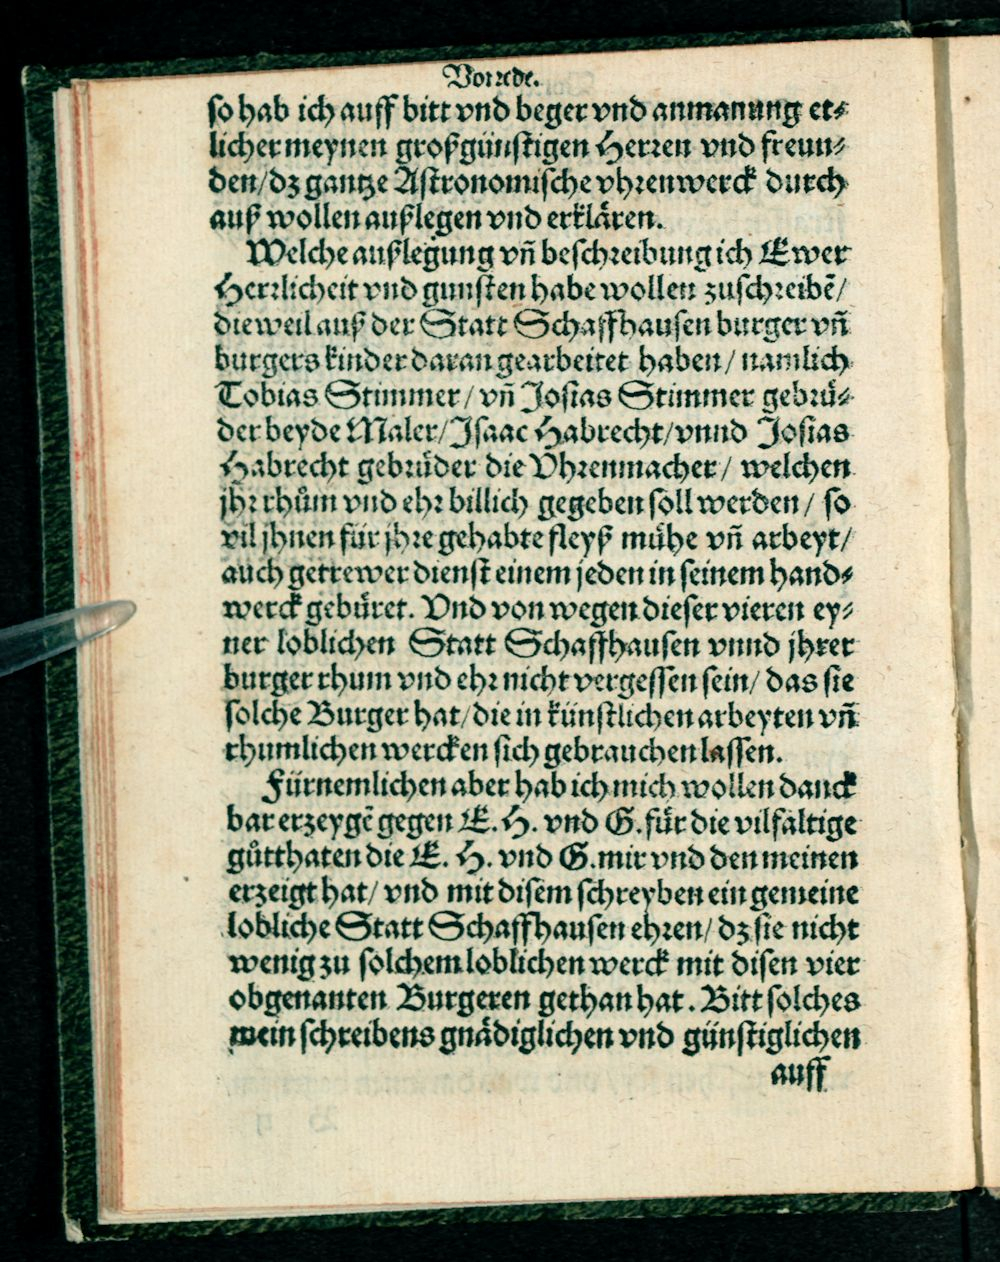 Vorrede.
so hab ich auff bitt vnd beger vnd anmanung et⸗
licher meynen großgünstigen Herren vnd freun⸗
den/ dz gantze Astronomische vhrenwerck durch
auß wollen außlegen vnd erklären.
Welche außlegung vñ beschreibung ich Ewer
Herrlicheit vnd gunsten habe wollen zuschreibẽ/
dieweil auß der Statt Schaffhausen burger vñ
burgers kinder daran gearbeitet haben/ namlich
Tobias Stimmer/ vñ Josias Stimmer gebrü⸗
der beyde Maler/ Isaac Habrecht/ vnnd Josias
Habrecht gebrüder die Vhrenmacher/ welchen
jhr rhům vnd ehr billich gegeben soll werden/ so
vil jhnen für jhre gehabte fleyß mühe vñ arbeyt/
auch getrewer dienst einem jeden in seinem hand⸗
werck gebüret. Vnd von wegen dieser vieren ey⸗
ner loblichen Statt Schaffhausen vnnd jhrer
burger rhum vnd ehr nicht vergessen sein/ das sie
solche Burger hat/ die in künstlichen arbeyten vñ
rhumlichen wercken sich gebrauchen lassen.
Fürnemlichen aber hab ich mich wollen danck
bar erzeygẽ gegen E. H. vnd G. für die vilfaltige
gůtthaten die E. H. vnd G. mir vnd den meinen
erzeigt hat/ vnd mit disem schreyben ein gemeine
lobliche Statt Schaffhausen ehren/ dz sie nicht
wenig zu solchem loblichen werck mit disen vier
obgenanten Burgeren gethan hat. Bitt solches
mein schreibens gnädiglichen vnd günstiglichen
auff